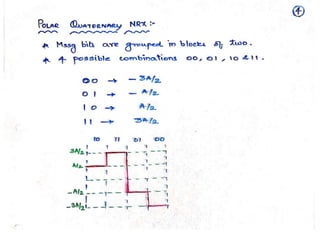 4
POLAR QUATERNARY NRZ :-
* Mssg bits are grouped in blocks of two.
* 4 possible combinations 00, 01, 10 & 11.
00 → - 3A/2
01 → - A/2
10 → A/2
11 → 3A/2
10 11 01 00
3A/2
A/2
-A/2
-3A/2